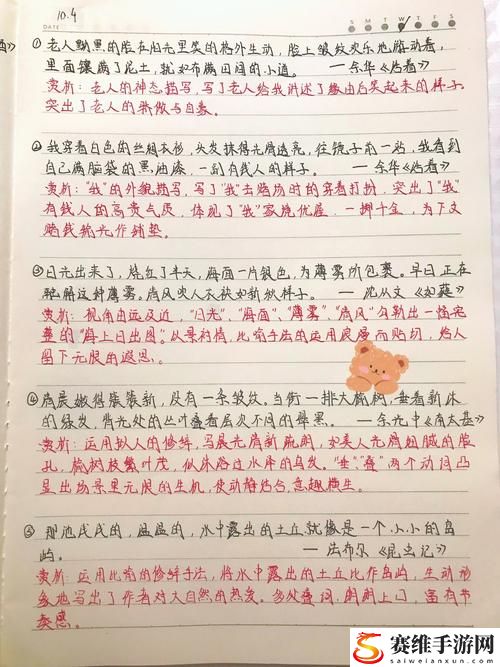 10.4
DATE
S M T W T F S
①老人黝黑的脸在阳光里笑的格外生动，脸上皱纹欢乐地游动着，
里面镶满了泥土，就如布满田间的小道。 —余华《活着》
赏析：老人的神态描写，写了老人给我讲述了缘由后笑起来的样子
突出了老人的骄傲与自豪。
②我穿着白色的丝绸衣衫，头发抹得光滑透亮，往镜子前一站，我看到
自己满脑袋的黑油漆，一副有钱人的样子。 —余华《活着》
赏析："我"的外貌描写，写了"我"去赌场时的穿着打扮，突出了"我"
有钱人的高贵气质，体现了"我"家境优渥，一掷千金，为下文
赌钱输光作铺垫。
③日光出来了，烧红了半天，海面一片银色，为薄雾所包裹。早日正在
融解这种薄雾。清风吹人衣袂如新秋样子。 —沈从文《如蕤》
赏析：视角由远及近，"日光""海面""薄雾""清风"勾勒出一幅完
整的"海上日出图"。从景衬情，比喻手法的运用浪漫而贴切，给人
留下无限的遐思。
④清晨嫩得簇簇新，没有一条皱纹。当街一排大榆树，垂着新沐
的绿发，背光处的丛叶叠着层次不同的翠黑。 —余光中《南太基》
赏析：运用拟人的修辞，写晨光清新疏朗，如美人光滑细腻的脸
孔，榆树枝繁叶茂，似沐浴过水泽的乌发。"垂""叠"两个动词凸
显出场景里无限的生机，使动静结合，意趣横生。
⑤那池浅浅的，温温的，水中露出的土丘就像是一个小小的岛
屿。 —法布尔《昆虫记》
赏析：运用比喻的修辞手法，将水中露出的土丘比作岛屿，生动形
象地写出了作者对大自然的热爱。多处叠词，朗朗上口，富有节
奏感。
赛维手游网
www.saiweilanxunr.com